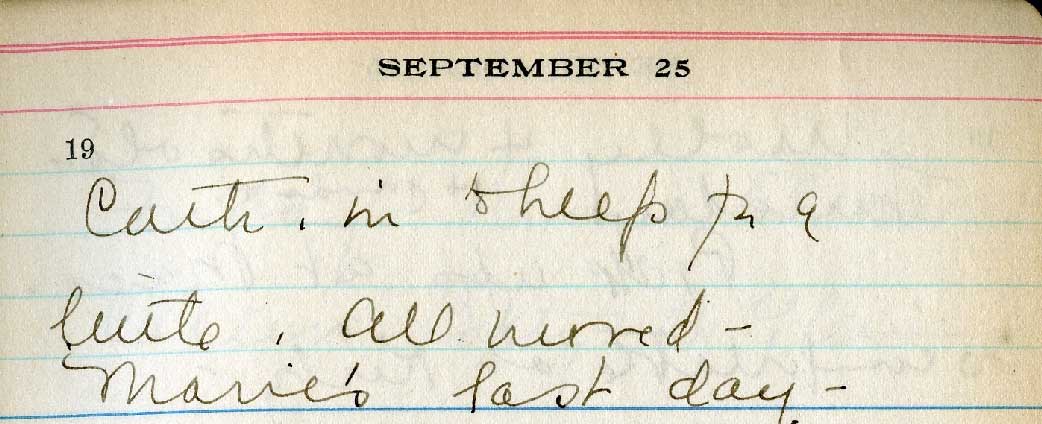 SEPTEMBER 25
19
Cath. in to help for a
little. All moved -
Marie's last day -